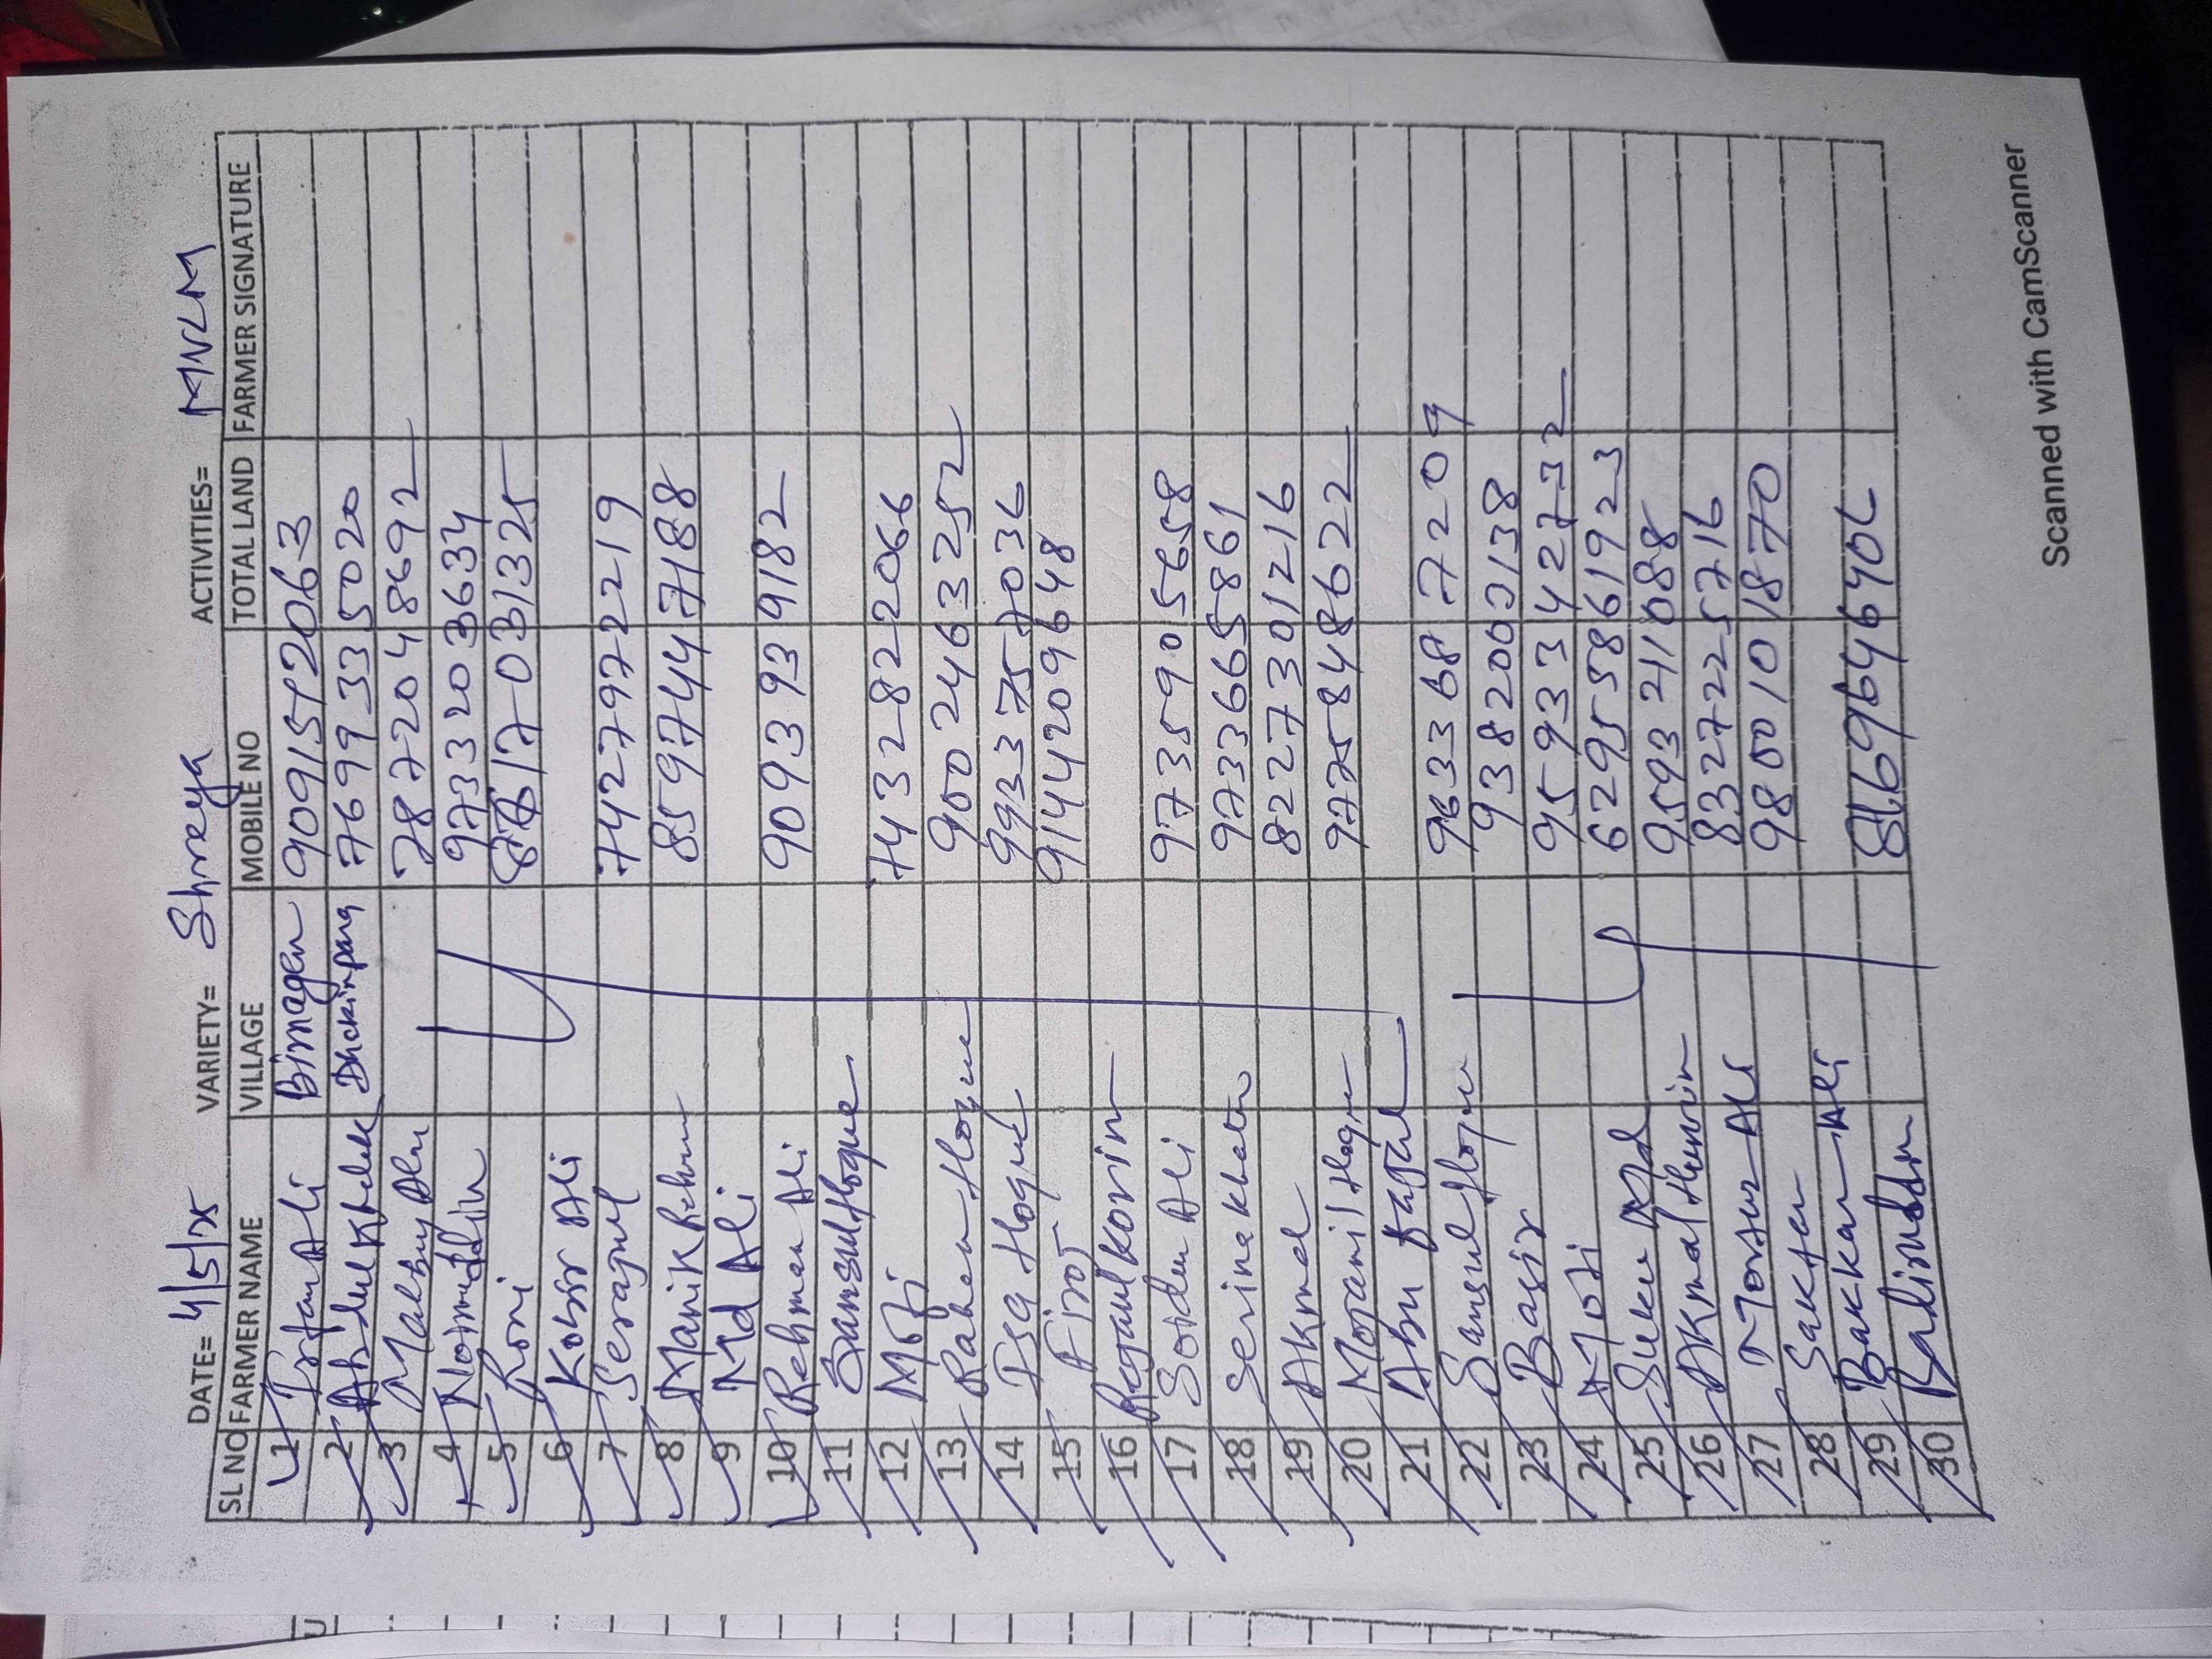 DATE= 4/5/25 VARIETY= Shreya ACTIVITIES= MNLM
SL NO FARMER NAME VILLAGE MOBILE NO TOTAL LAND FARMER SIGNATURE
1 Irfan Ali Bimagen
2 Abdul Khalek Dhakinpara 7699335020
3 7872048692
4 Noimuddin 9733203634
5 Roni
6 Kobir Ali
7 Serajul 7427972219
8 Manik Rehman 8597447188
9 Md Ali
10 Rehman Ali 9093939182
11 Samsul Hoque
12 Moti 7432822066
13 Raheen Hoque 9002463252
14 Isa Hoque
15 Firoj 9144209648
16 Rejaul Korim
17 Soidur Ali 9735905658
18 Serina Khatun 9733665861
19 Akmal 8227301216
20 Mojamil Hoque 9775848622
21 Abu
22 Samsul Hoque 9633687209
23 Basir 9382003138
24 Moti 9593342732
25 6295586192 3
26 Akmal Hussain 9593211088
27 Ali 8327225716
28 Saktar 9800101870
29 Bakkar Ali
30
Scanned with CamScanner